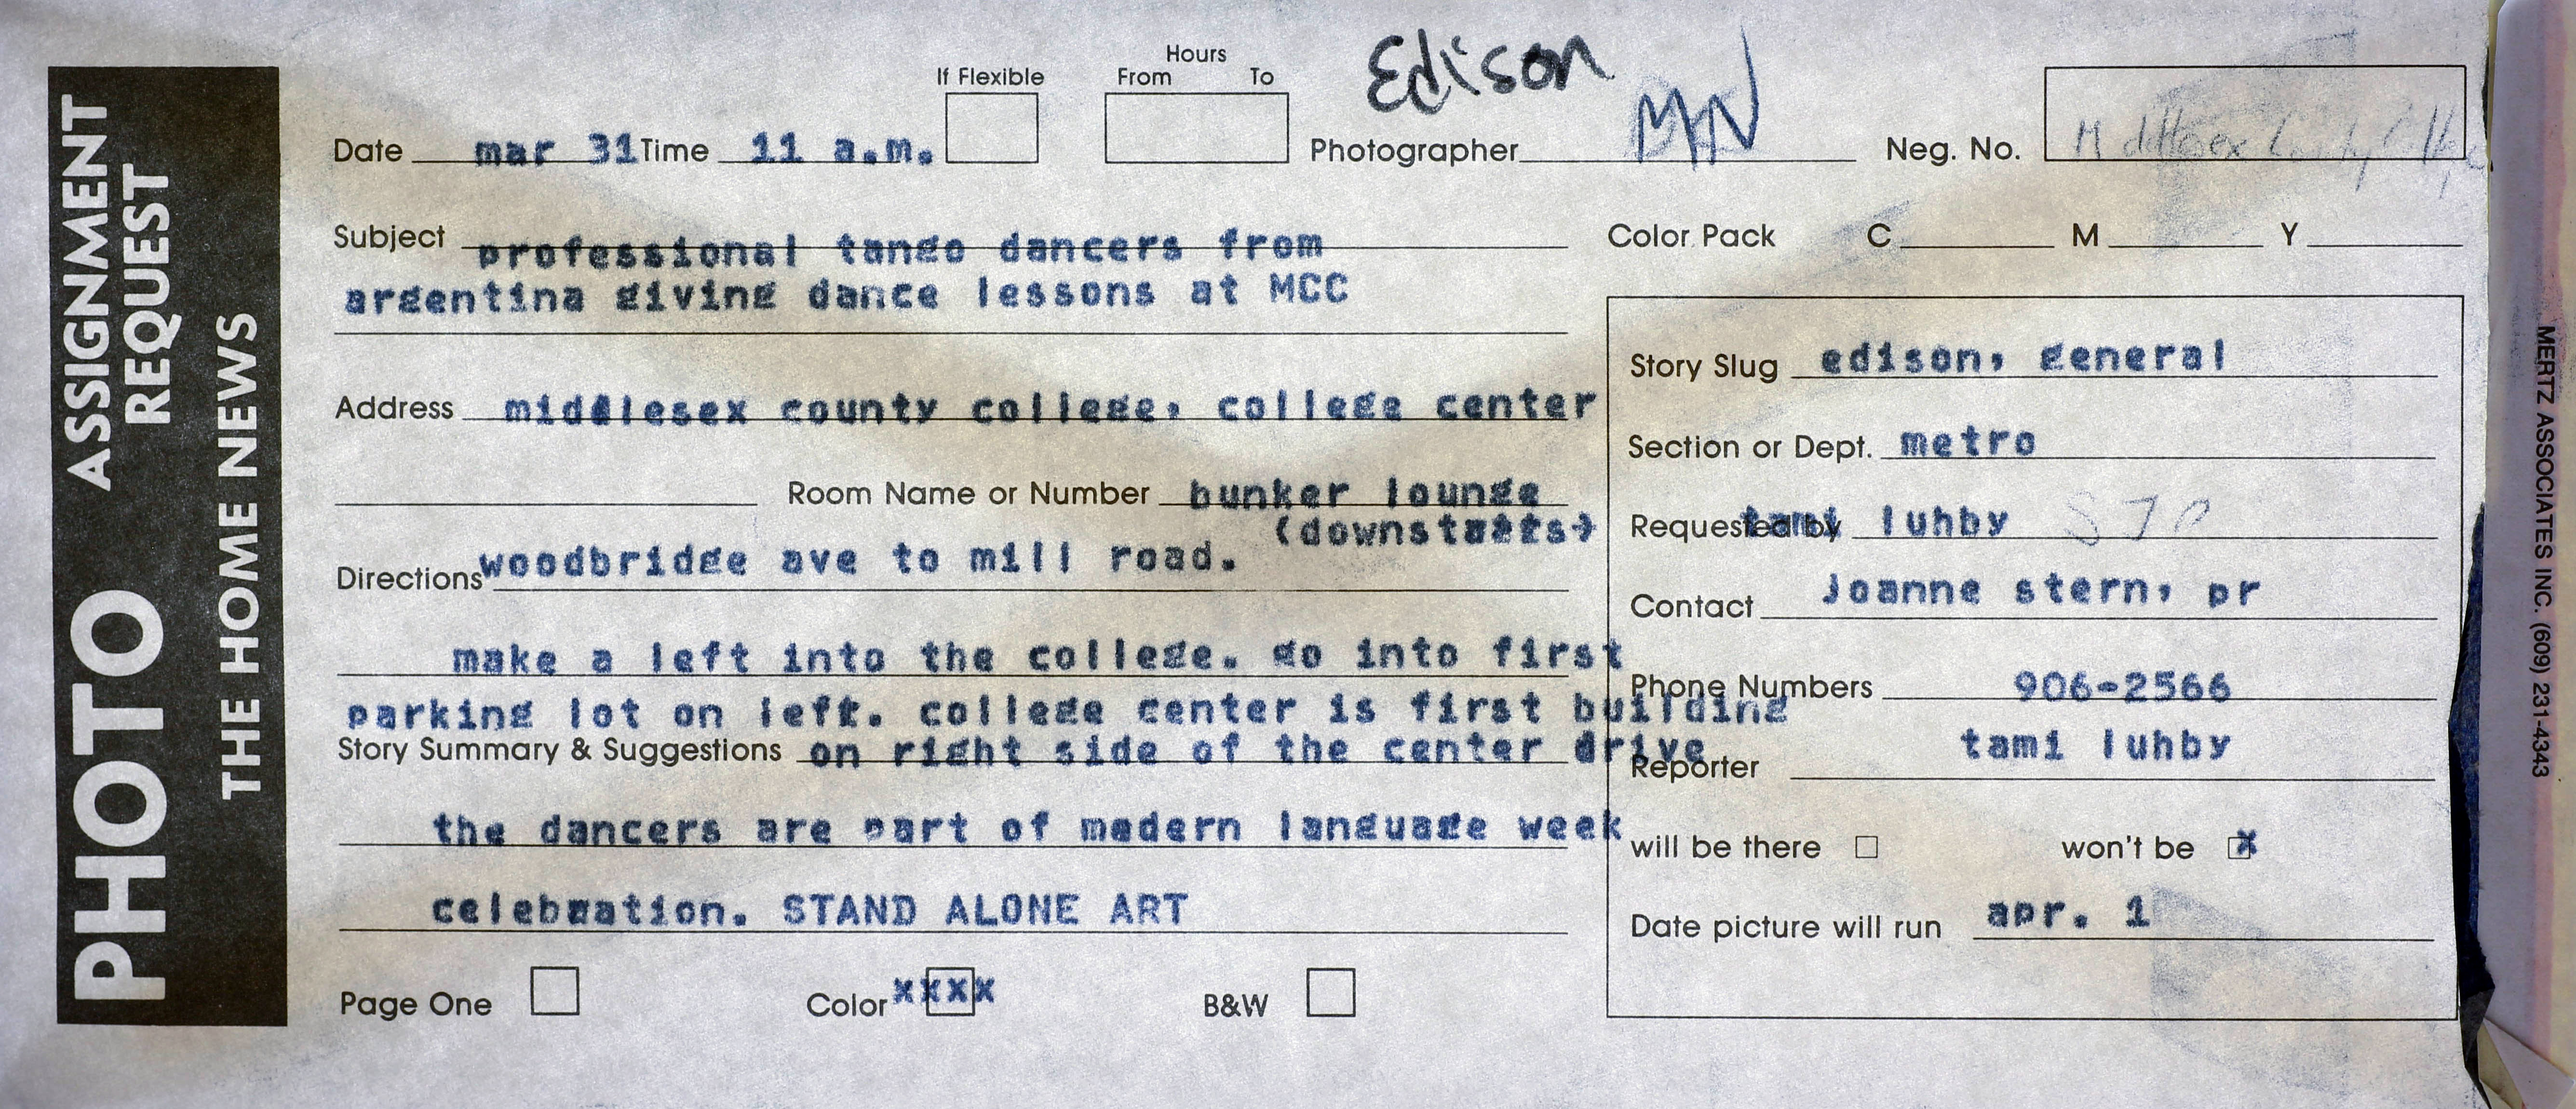 PHOTO ASSIGNMENT REQUEST
THE HOME NEWS
Edison
Hours
If Flexible From To
Date mar 31 Time 11 a.m. Photographer Neg. No. Middlesex County College
Subject professional tango dancers from
argentina giving dance lessons at MCC
Color Pack C M Y
Address middlesex county college, college center
Room Name or Number bunker lounge
(downstairs)
Directions woodbridge ave to mill road.
make a left into the college. go into first
parking lot on left. college center is first building
Story Summary & Suggestions on right side of the center drive
the dancers are part of modern language week
celebration. STAND ALONE ART
Page One Color xxxx B&W
Story Slug edison, general
Section or Dept. metro
Requested by tami luhby
Contact Joanne stern, pr
Phone Numbers 906-2566
Reporter tami luhby
will be there won't be x
Date picture will run apr. 1
MERTZ ASSOCIATES INC. (609) 231-4343